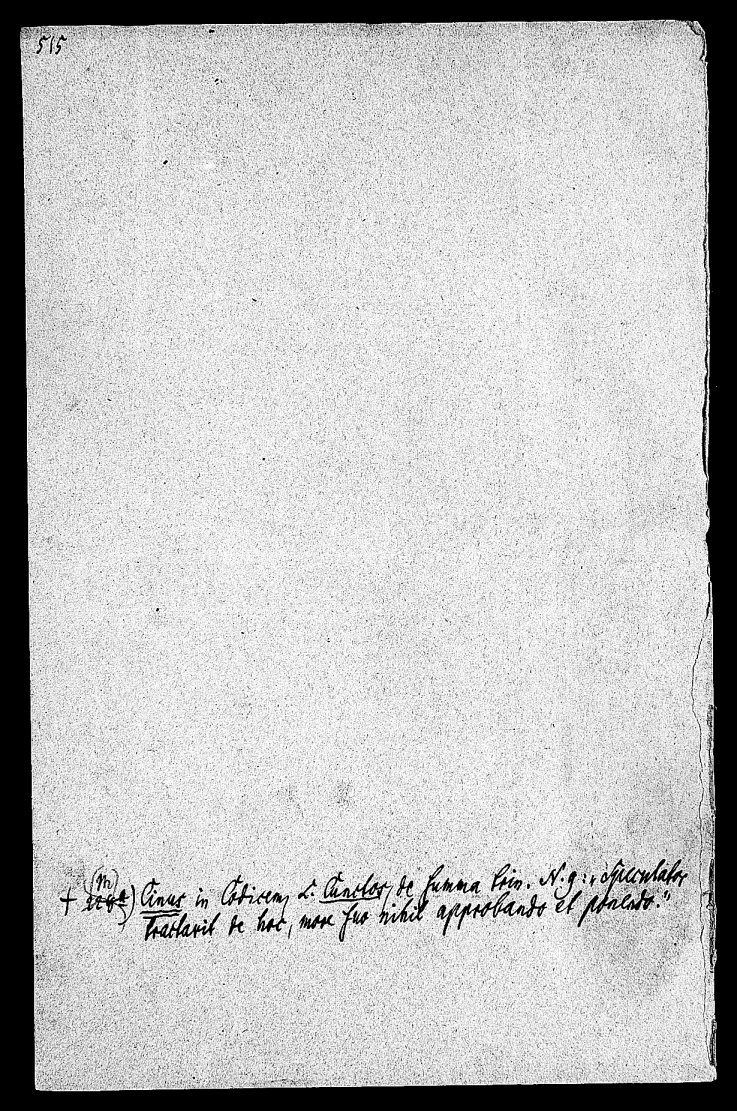 515
+ (m)) Cinus in Codicem, L. Cunctos, de summa trin. N. 9: „Speculator
tractavit de hoc, more suo nihil approbando et ponendo.“